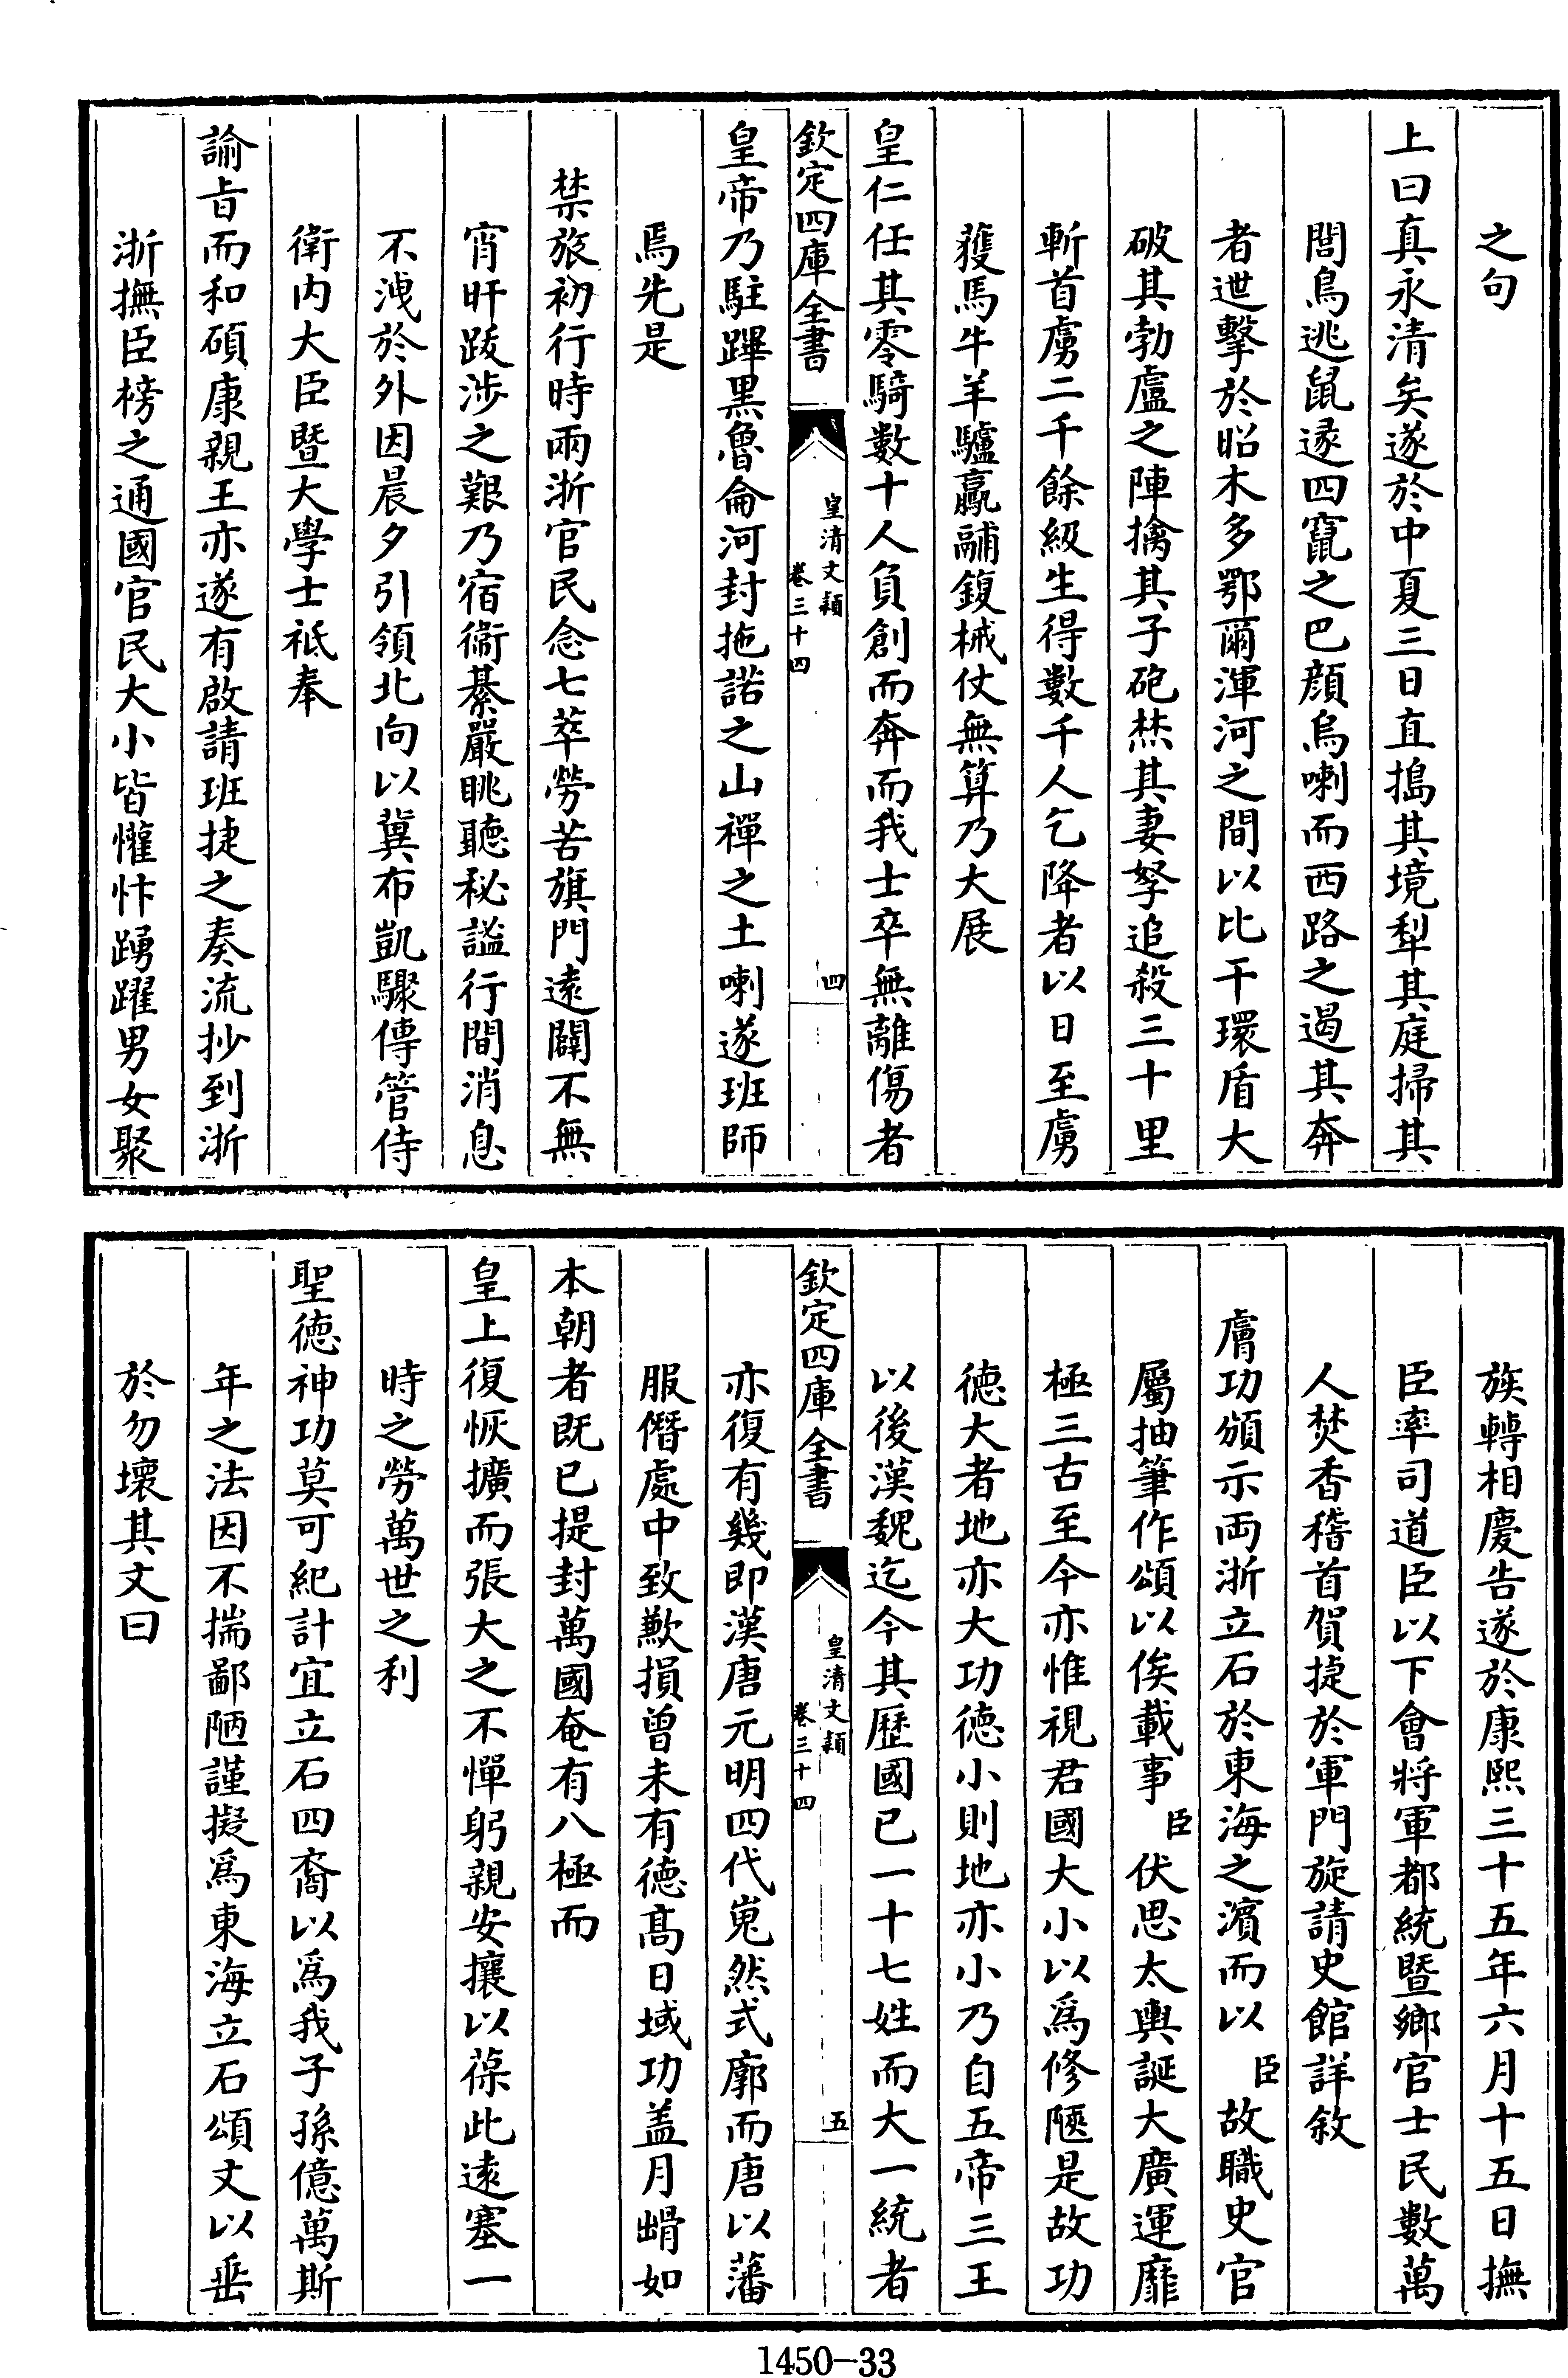 之句
上曰真永清矣遂於中夏三日直搗其境犁其庭掃其
閭鳥逃鼠遂四竄之巴顔烏喇而西路之遏其奔
者迣擊於昭木多鄂爾渾河之間以比干環盾大
破其勃盧之陣擒其子砲焚其妻孥追殺三十里
斬首虜二千餘級生得數千人乞降者以日至虜
獲馬牛羊驢羸鬴鍑械仗無算乃大展
皇仁任其零騎數十人負創而奔而我士卒無離傷者
欽定四庫全書
皇清文穎
卷三十四
四
皇帝乃駐蹕黑魯侖河封拖諾之山禪之土喇遂班師
焉先是
禁旅初行時兩浙官民念七萃勞苦旗門遠闢不無
宵旰跋涉之艱乃宿衞綦嚴眺聽秘謐行間消息
不洩於外因晨夕引領北向以冀布凱驟傳管侍
衛内大臣暨大學士祗奉
諭㫖而和碩康親王亦遂有啟請班捷之奏流抄到浙
浙撫臣榜之通國官民大小皆懽忭踴躍男女聚
族轉相慶告遂於康熙三十五年六月十五日撫
臣率司道臣以下會將軍都統暨鄉官士民數萬
人焚香稽首賀捷於軍門旋請史館詳敘
膚功頒示両浙立石於東海之濱而以臣故職史官
屬抽筆作頌以俟載事臣伏思太輿誕大廣運靡
極三古至今亦惟視君國大小以爲修陿是故功
徳大者地亦大功徳小則地亦小乃自五帝三王
以後漢魏迄今其歷國已一十七姓而大一統者
欽定四庫全書
皇清文穎
卷三十四
五
亦復有幾即漢唐元明四代嵬然式廓而唐以藩
服僭處中致歉損曾未有徳髙日域功盖月㟯如
本朝者既已提封萬國奄有八極而
皇上復恢擴而張大之不憚躬親安攘以葆此遠塞一
時之勞萬世之利
聖徳神功莫可紀計宜立石四裔以爲我子孫億萬斯
年之法因不揣鄙陋謹擬爲東海立石頌文以垂
於勿壞其文曰
1450-33